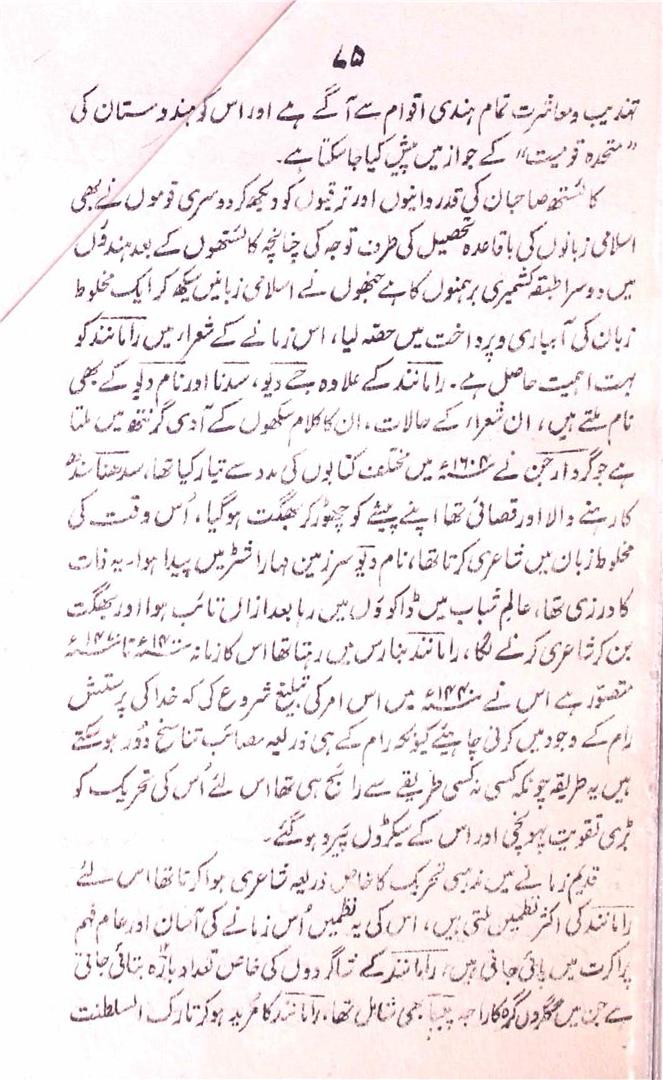 ۸۵
تہذیب و معاشرت تمام ہندی اقوام سے آگے ہے اور اس کو ہندوستان کی
”متحدہ قومیت“ کے جواز میں پیش کیا جا سکتا ہے۔
کائستھ صاحبان کی قدر دانیوں اور ترقیوں کو دیکھ کر دوسری قوموں نے بھی
اسلامی زبانوں کی باقاعدہ تحصیل کی طرف توجہ کی چنانچہ کائستھوں کے بعد ہندوؤں
میں دوسرا طبقہ کشمیری برہمنوں کا ہے جنھوں نے اسلامی زبانیں سیکھ کر ایک مخلوط
زبان کی آبیاری و پرداخت میں حصّہ لیا، اس زمانے کے شعراء میں رامانند کو
بہت اہمیت حاصل ہے۔ رامانند کے علاوہ جے دیو، سدنا اور نام دیو کے بھی
نام ملتے ہیں، ان شعراء کے حالات، ان کا کلام سکھوں کے آدی گرنتھ میں ملتا
ہے جو گرد ارجن نے ۱۶۰۴ء میں مختلف کتابوں کی مدد سے تیار کیا تھا، سدھنا سندھ
کا رہنے والا اور قصائی تھا اپنے پیشے کو چھوڑ کر بھگت ہو گیا، اُس وقت کی
مخلوط زبان میں شاعری کرتا تھا، نام دیو سرزمین مہاراشٹر میں پیدا ہوا۔ یہ ذات
کا درزی تھا، عالمِ شباب میں ڈاکوؤں میں رہا بعد ازاں تائب ہوا اور بھگت
بن کر شاعری کرنے لگا، رامانند بنارس میں رہتا تھا اس کا زمانہ ۱۴۰۰ء تا
متصوّر ہے اس نے ۱۴۴۰ء میں اس امر کی تبلیغ شروع کی کہ خدا کی پرستش
رام کے وجود میں کرنی چاہیئے کیونکہ رام کے ہی ذریعہ مصائب تناسخ دُور ہو سکتے
ہیں یہ طریقہ چونکہ کسی نہ کسی طریقے سے رائج ہی تھا اس لئے اُس کی تحریک کو
بڑی تقویت پہونچی اور اس کے سیکڑوں پیرو ہو گئے۔
قدیم زمانے میں مذہبی تحریک کا خاص ذریعہ شاعری ہوا کرتا تھا اس لئے
رامانند کی اکثر نظمیں ملتی ہیں، اس کی یہ نظمیں اُس زمانے کی آسان اور عام فہم
پراکرت میں پائی جاتی ہیں، رامانند کے شاگردوں کی خاص تعداد بارہ بتائی جاتی
ہے جن میں کا راجہ پیپا بھی شامل تھا، رامانند کا مُرید ہو کر تارک السلطنت